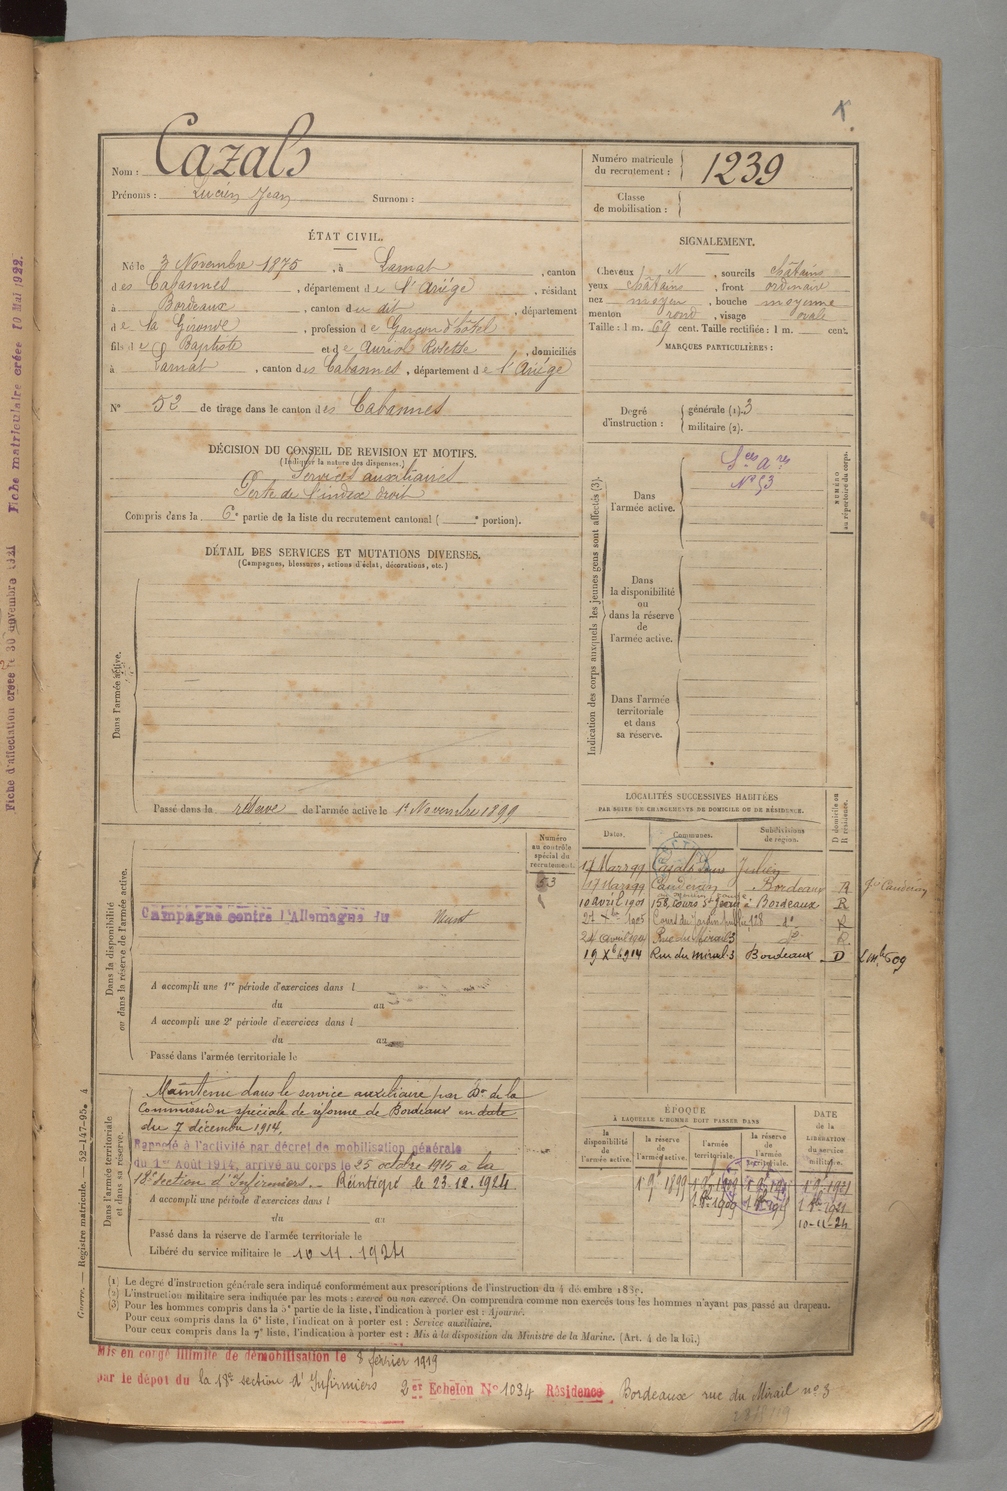 Fiche d'affectation créée le 30 novembre 1921 Fiche matriculaire créée 10 Mai 1922.
Nom : Cazals
Prénoms : Lucien Jean Surnom :
Numéro matricule
du recrutement : 1239
Classe
de mobilisation :
ÉTAT CIVIL.
Né le 3 Novembre 1875, à Larnat, canton
des Cabannes, département de l'Ariége, résidant
à Bordeaux, canton du dit, département
de la Gironde, profession de Garçon d'hôtel
fils de Baptiste et de Auriol Rosette, domiciliés
à Larnat, canton des Cabannes, département de l'Ariége
N° 53 de tirage dans le canton des Cabannes
SIGNALEMENT.
Cheveux N, sourcils châtains
yeux châtains, front ordinaire
nez moyen, bouche moyenne
menton rond, visage ovale
Taille : 1 m. 69 cent. Taille rectifiée : 1 m. cent.
MARQUES PARTICULIÈRES :
Degré
d'instruction :
générale (1). 3
militaire (2).
DÉCISION DU CONSEIL DE REVISION ET MOTIFS.
(Indiquer la nature des dispenses.)
Services auxiliaires
Perte de l'index droit
Compris dans la 6e partie de la liste du recrutement cantonal ( e portion).
Indication des corps auxquels les jeunes gens sont affectés (3).
Dans
l'armée active.
Sces ares
N° 53
NUMÉRO
au répertoire du corps.
Dans
la disponibilité
ou
dans la réserve
de
l'armée active.
Dans l'armée
territoriale
et dans
sa réserve.
DÉTAIL DES SERVICES ET MUTATIONS DIVERSES.
(Campagnes, blessures, actions d'éclat, décorations, etc.)
Dans l'armée active.
Passé dans la réserve de l'armée active le 1er Novembre 1899
LOCALITÉS SUCCESSIVES HABITÉES
PAR SUITE DE CHANGEMENTS DE DOMICILE OU DE RÉSIDENCE.
D domicile ou
R résidence.
Dates. Communes. Subdivisions
de région.
17 Mars 99
17 Mars 99 Caudéran Bordeaux R
10 avril 1901 158, cours St Jean à Bordeaux R
27 Xbre 1905 Cours du Jardin public 128 do R
24 avril Rue du Mirail 3 do R
19 Xb 1914 Rue du mirail 3 Bordeaux D
Numéro
au contrôle
spécial du
recrutement.
53
Dans la disponibilité
ou dans la réserve de l'armée active.
Campagne contre l'Allemagne du Néant
A accompli une 1re période d'exercices dans l
du au
A accompli une 2e période d'exercices dans l
du au
Passé dans l'armée territoriale le
Dans l'armée territoriale
et dans sa réserve.
Maintenu dans le service auxiliaire par Don de la
Commission spéciale de réforme de Bordeaux en date
du 7 décembre 1914.
Rappelé à l'activité par décret de mobilisation générale
du 1er Août 1914, arrivé au corps le 25 octobre 1915 à la
18e section d'Infirmiers. - Réintégré le 23.12.1924
A accompli une période d'exercices dans l
du au
Passé dans la réserve de l'armée territoriale le
Libéré du service militaire le 10.11.1924
ÉPOQUE
À LAQUELLE L'HOMME DOIT PASSER DANS
DATE
de la
LIBÉRATION
du service
militaire.
la
disponibilité
de
l'armée active.
la réserve
de
l'armée active.
l'armée
territoriale.
la réserve
de
l'armée
territoriale.
1 9bre 1899 1 9bre 1909
1 8bre 1909
10-11-24
(1) Le degré d'instruction générale sera indiqué conformément aux prescriptions de l'instruction du 4 décembre 1889.
(2) L'instruction militaire sera indiquée par les mots : exercé ou non exercé. On comprendra comme non exercés tous les hommes n'ayant pas passé au drapeau.
(3) Pour les hommes compris dans la 5e partie de la liste, l'indication à porter est : Ajourné.
Pour ceux compris dans la 6e liste, l'indication à porter est : Service auxiliaire.
Pour ceux compris dans la 7e liste, l'indication à porter est : Mis à la disposition du Ministre de la Marine. (Art. 4 de la loi.)
Guerre. — Registre matricule. — 52-147-95. 4
Mis en congé illimité de démobilisation le 8 février 1919
par le dépôt du la 18e section d'Infirmiers 2er Echelon N° 1034 Résidence Bordeaux rue du Mirail n° 3